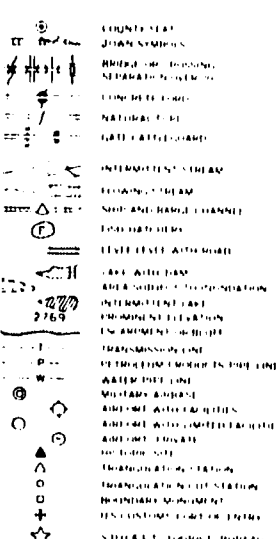 COUNTY SEAT
TOWN SYMBOLS
BRIDGE OR CROSSING
SEPARATION OVER 20
CONCRETE FORD
NATURAL
GATE CATTLEGUARD
INTERMITTENT STREAM
FLOWING STREAM
SHIP AND BARGE CHANNEL
F FISH HATCHERY
LEVEE LEVEE WITH ROAD
LAKE WITH DAM
AREA SUBJECT TO INUNDATION
INTERMITTENT LAKE
2769 PROMINENT ELEVATION
ESCARPMENT OR BLUFF
T TRANSMISSION LINE
P PETROLEUM PRODUCTS PIPE LINE
W WATER PIPE LINE
MILITARY AIRBASE
AIRPORT WITH FACILITIES
AIRPORT WITH LIMITED FACILITIES
AIRPORT PRIVATE
HISTORIC SITE
TRIANGULATION STATION
TRIANGULATION CUT STATION
BOUNDARY MONUMENT
U S CUSTOMS PORT OF ENTRY
TOURIST BUREAU